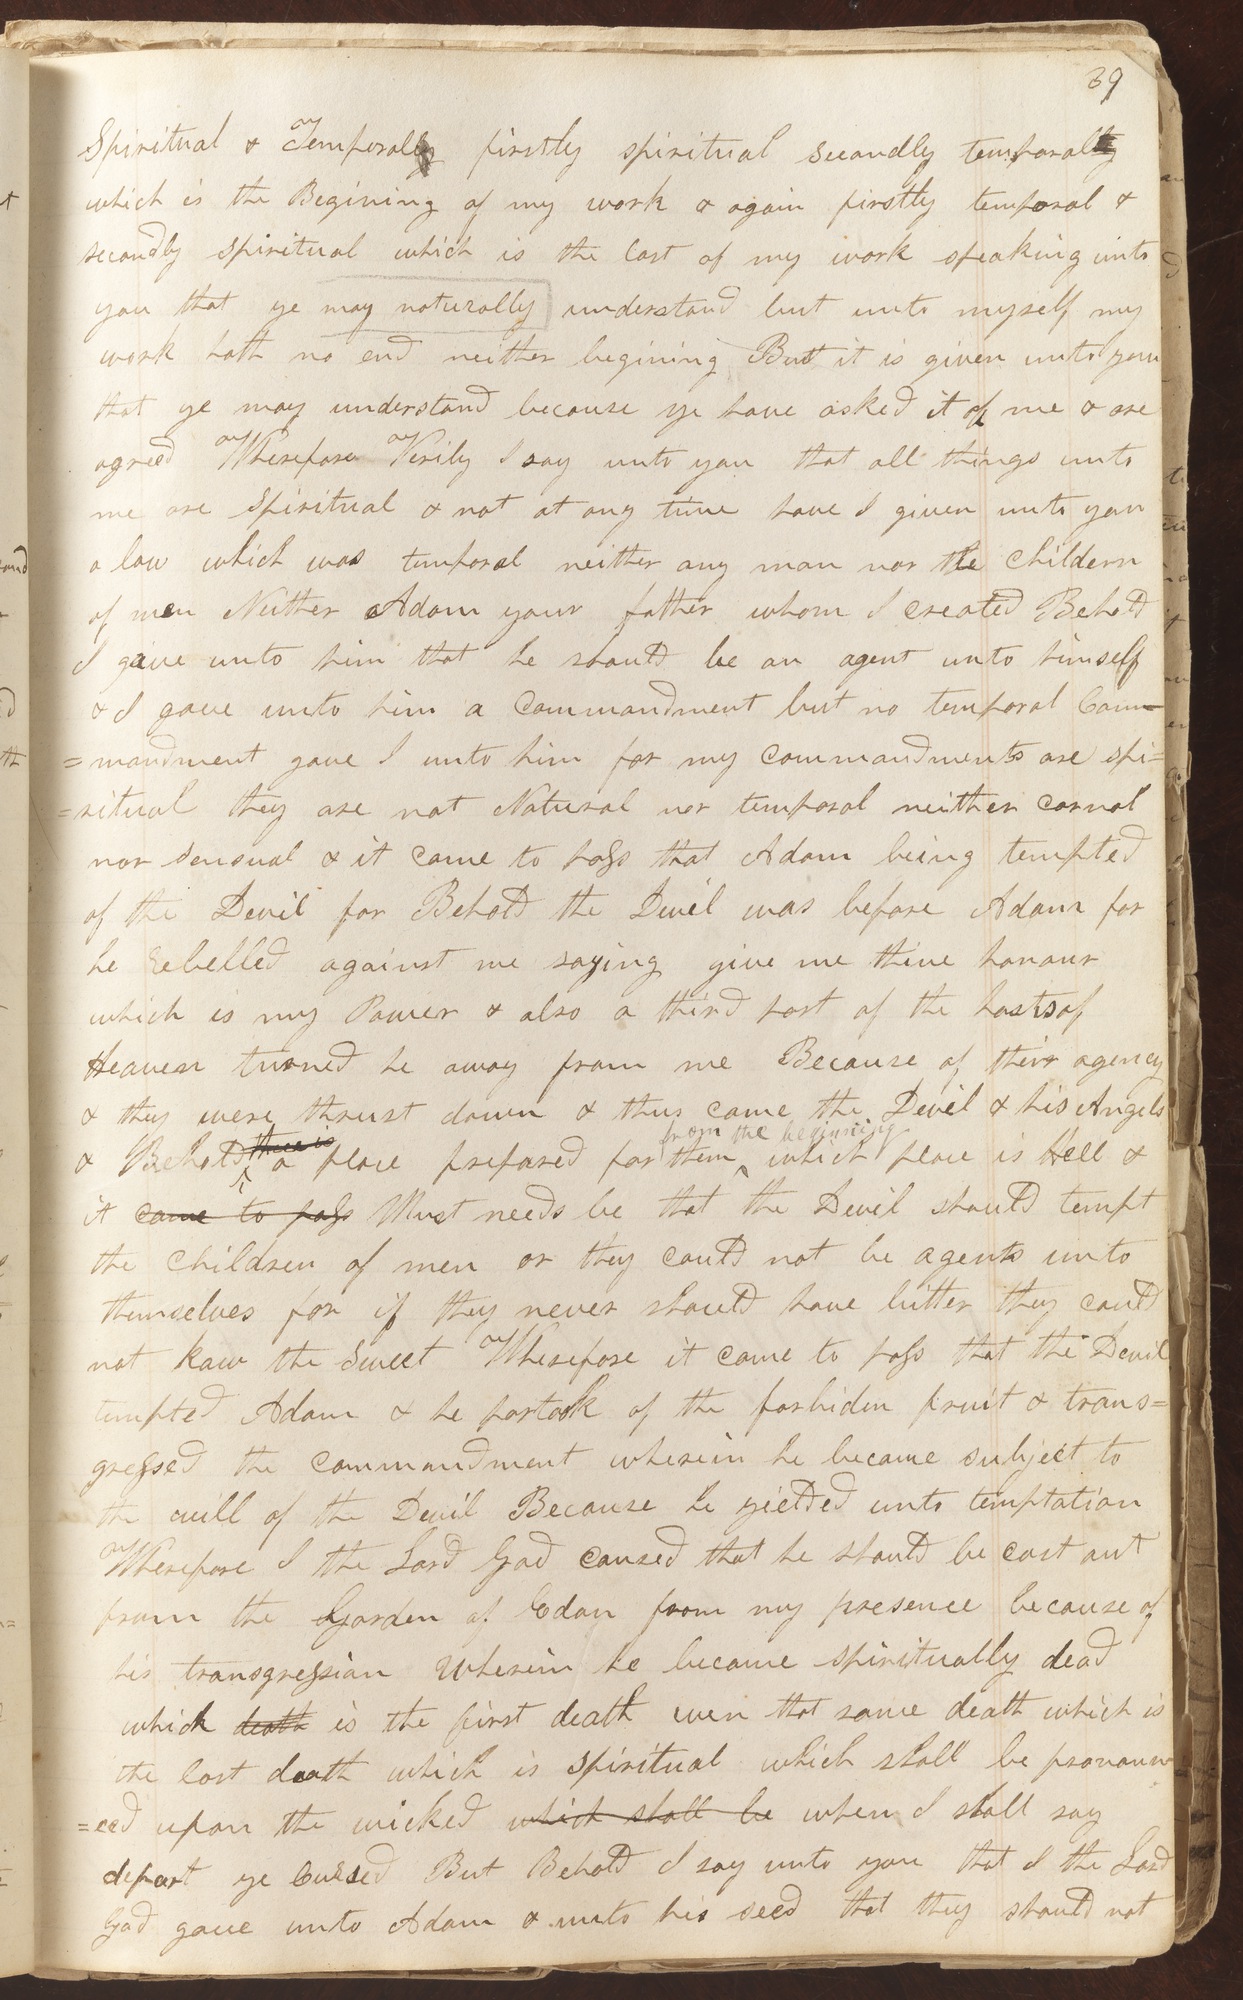 39
Spiritual & Temporal firstly spiritual secondly temporal
which is the Begining of my work & again firstly temporal &
secondly spiritual which is the last of my work speaking unto
you that ye may naturally understand but unto myself my
work hath no end neither begining But it is given unto you
that ye may understand because ye have asked it of me & are
agreed Wherefore Verily I say unto you that all things unto
me are spiritual & not at any time have I given unto you
a law which was temporal neither any man nor the Childern
of men Neither Adam your father whom I created Behold
I gave unto him that he should be an agent unto himself
& I gave unto him a Commandment but no temporal Com-
=mandment gave I unto him for my Commandments are spi=
=ritual they are not Natural nor temporal neither carnal
nor sensual & it came to pass that Adam being tempted
of the Devil for Behold the Devil was before Adam for
he rebelled against me saying give me thine honour
which is my Power & also a third part of the hosts of
Heaven turned he away from me Because of their agency
& they were thrust down & thus came the Devil & his Angels
from the beginning
& Behold there is a place prepared for them which place is Hell &
it came to pass Must needs be that the Devil should tempt
the Children of men or they could not be agents unto
themselves for if they never should have bitter they could
not know the sweet Wherefore it came to pass that the Devil
tempted Adam & he partook of the forbiden fruit & trans=
gressed the commandment wherein he became subject to
the will of the Devil Because he yielded unto temptation
Wherefore I the Lord God caused that he should be cast out
from the Garden of Edan from my presence because of
his transgression wherein he became spiritually dead
which death is the first death even that same death which is
the last death which is spiritual which shall be pronoun
=ced upon the wicked which shall be when I shall say
depart ye Cursed But Behold I say unto you that I the Lord
God gave unto Adam & unto his seed that they should not